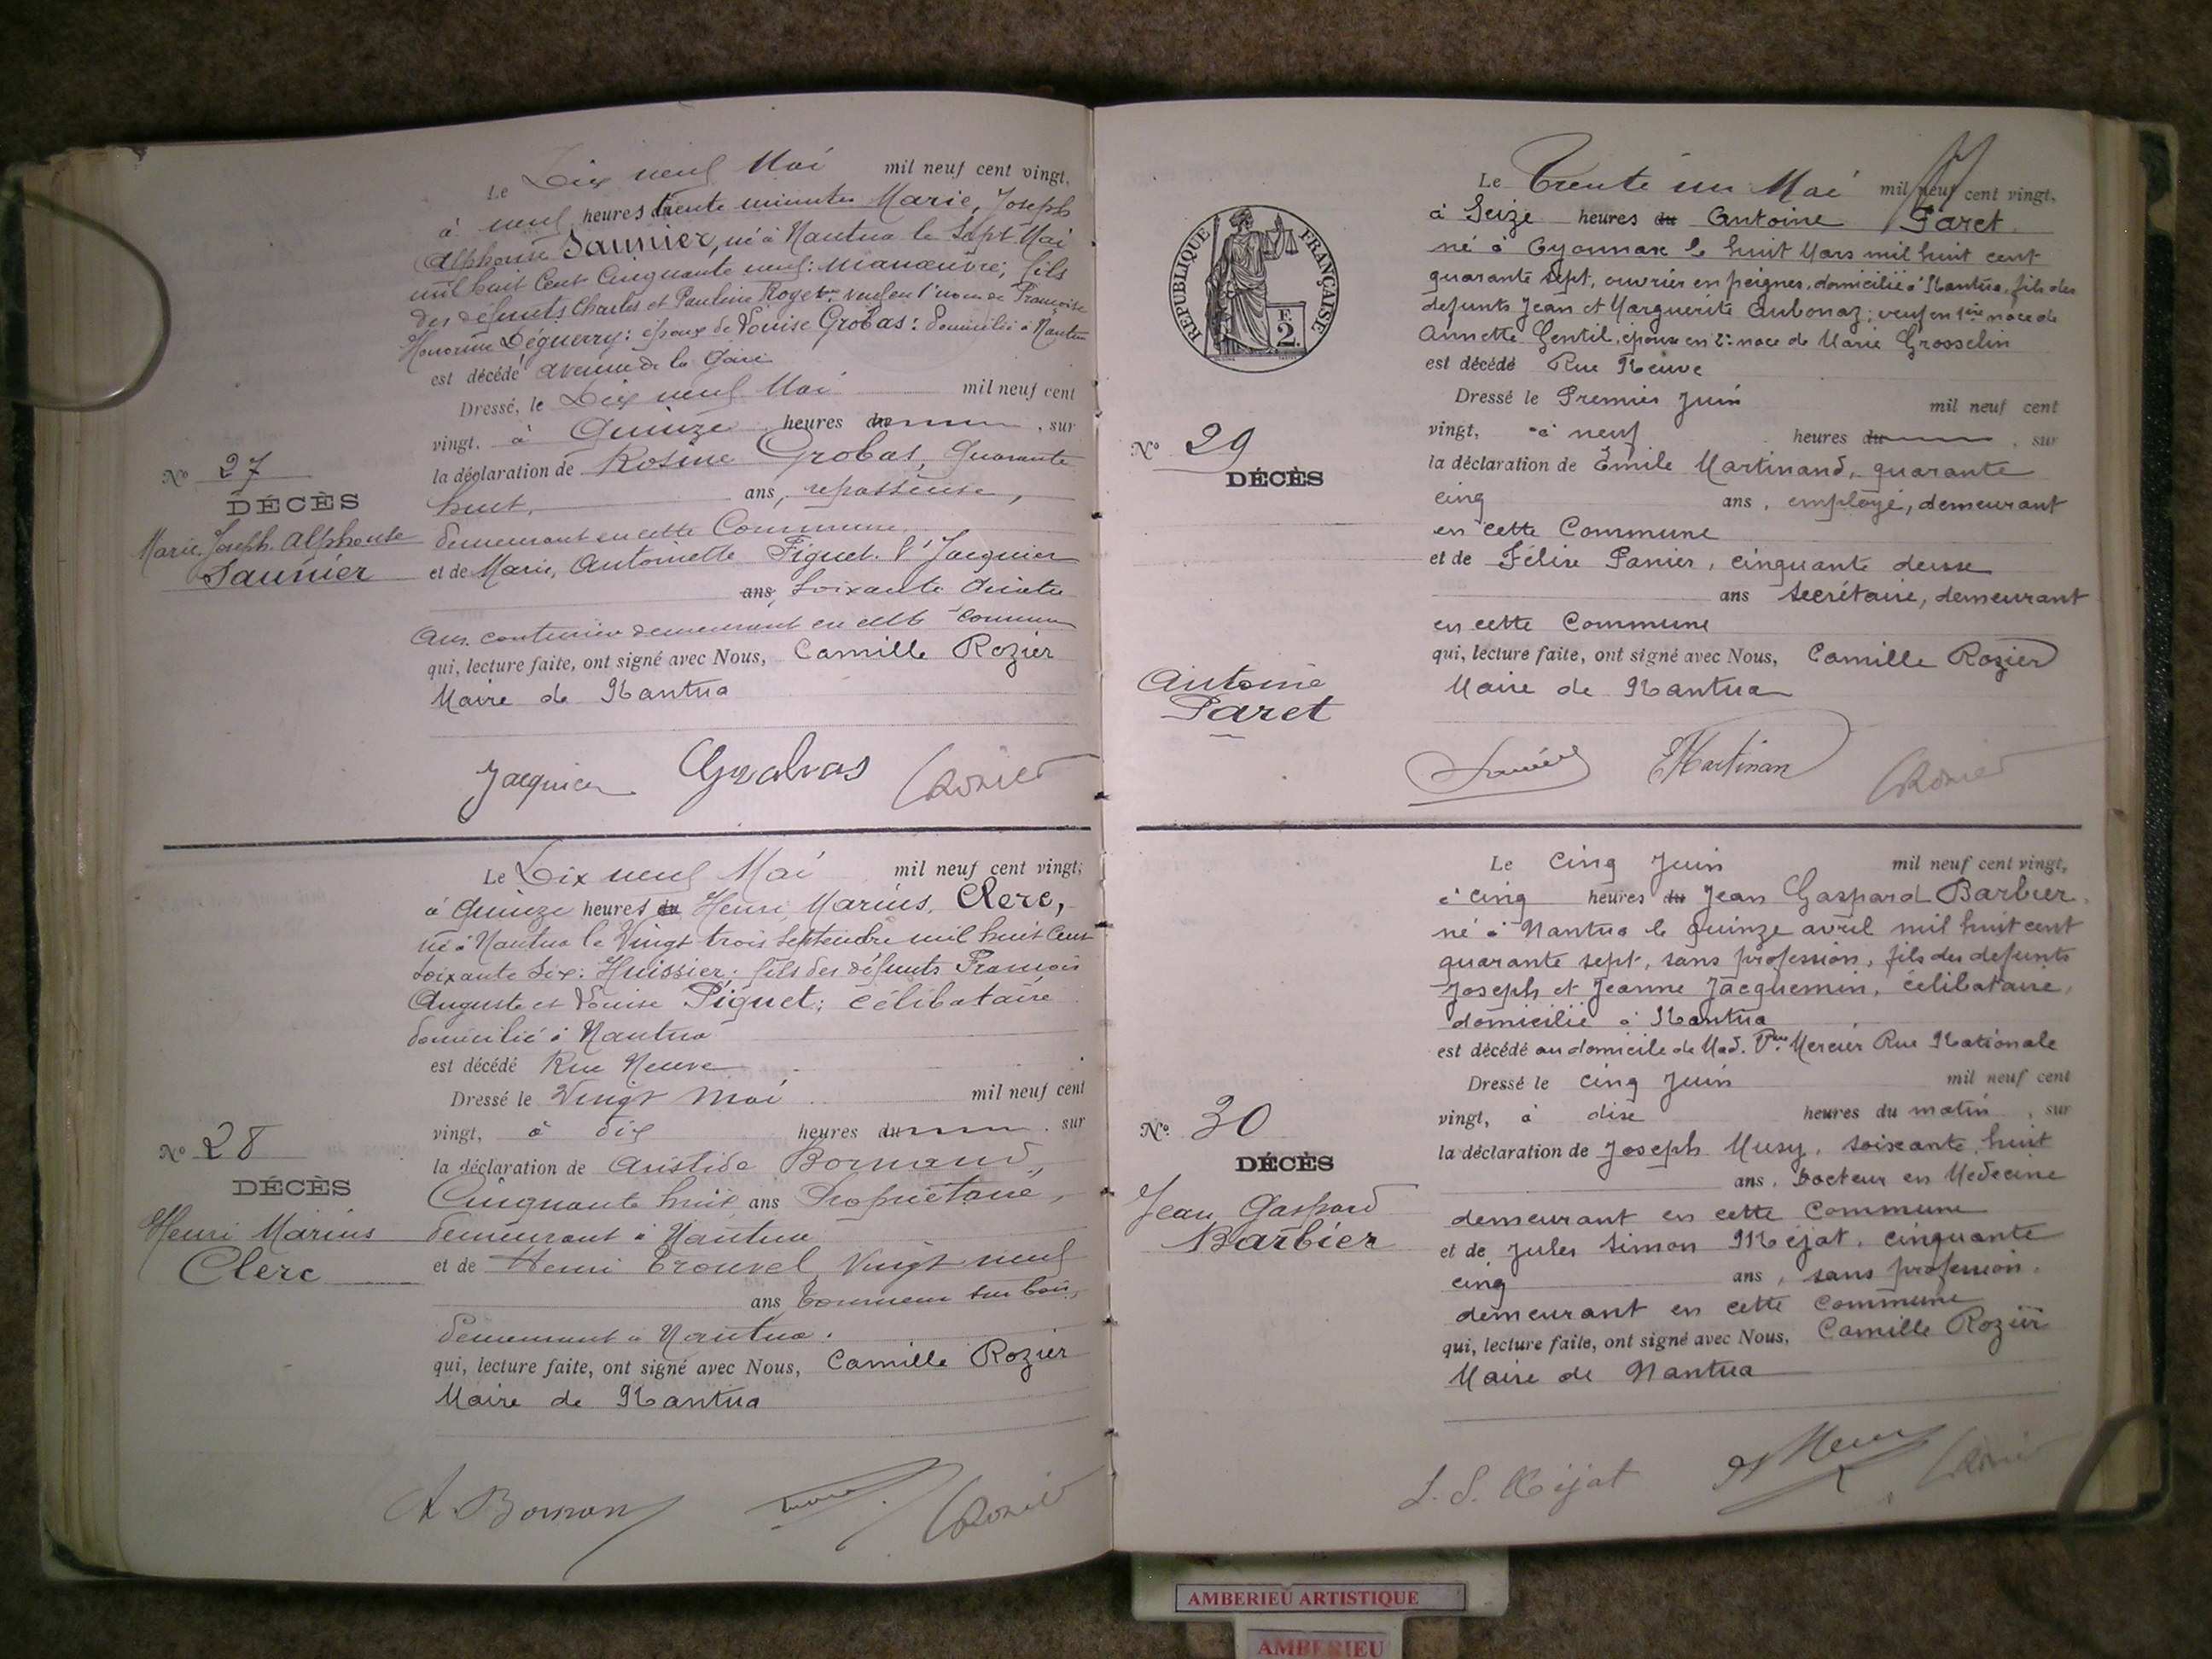 Le Dix neuf Mai mil neuf cent vingt,
à neuf heures trente minutes Marie, Joseph
Alphonse Saunier, né à Nantua le Sept Mai
mil huit Cent Cinquante neuf: manœuvre; fils
des défunts Charles et Pauline Roget: veuf en 1re noces de Françoise
Honorine Déguerry: époux de Louise Grobas: Domicilié à Nantua
est décédé avenue de la Gare
Dressé, le Dix neuf Mai mil neuf cent
vingt. à Quinze heures du , sur
la déclaration de Rosine Grobas, Quarante
huit, ans, repasseuse,
demeurant en cette Commune
et de Marie, Antoinette Piguet. Vve Jacquier
ans, Soixante Quatre
Ans. couturière demeurant en cette commune
qui, lecture faite, ont signé avec Nous, Camille Rozier
Maire de Nantua
Jacquier Grobas Rozier
No 27
DÉCÈS
Marie Joseph Alphonse
Saunier
Le Dix neuf Mai mil neuf cent vingt;
à Quinze heures du Henri Marius, Clerc,
né à Nantua le Vingt trois Septembre mil huit Cent
soixante Six: Huissier: fils des défunts François
Auguste et Louise Piguet; Célibataire
domicilié à Nantua
est décédé Rue Neuve
Dressé le Vingt Mai mil neuf cent
vingt, à dix heures du . sur
la déclaration de Aristide Bornand,
Cinquante huit ans Propriétaire,
demeurant à Nantua
et de Henri Trouvel Vingt neuf
ans tourneur sur bois,
demeurant à Nantua.
qui, lecture faite, ont signé avec Nous, Camille Rozier
Maire de Nantua
A. Bornan Rozier
No 28
DÉCÈS
Henri Marius
Clerc
RÉPUBLIQUE FRANÇAISE
F.
2.
Le Trente un Mai mil neuf cent vingt,
à Seize heures du Antoine Paret
né à Oyonnax le huit Mars mil huit cent
quarante sept, ouvrier en peignes, domicilié à Nantua, fils des
defunts Jean et Marguerite Aubonaz; veuf en 1ère noce de
Annette Gentil, époux en 2e noce de Marie Grosselin
est décédé Rue Neuve
Dressé le Premier Juin mil neuf cent
vingt, à neuf heures du , sur
la déclaration de Emile Martinand, quarante
cinq ans, employé, demeurant
en cette Commune
et de Félix Panier, cinquante deux
ans Secrétaire, demeurant
en cette Commune
qui, lecture faite, ont signé avec Nous, Camille Rozier
Maire de Nantua
EMartinan Rozier
No 29
DÉCÈS
Antoine
Paret
Le Cinq Juin mil neuf cent vingt,
à cinq heures du Jean Gaspard Barbier,
né à Nantua le quinze avril mil huit cent
quarante sept, sans profession, fils des defunts
Joseph et Jeanne Jacquemin, célibataire,
domicilié à Nantua
est décédé au domicile de Mad. Vve Mercier Rue Nationale
Dressé le cinq Juin mil neuf cent
vingt, à dix heures du matin, sur
la déclaration de Joseph Musy, soixante huit
ans, Docteur en Médecine
demeurant en cette Commune
et de Jules Simon Méjat, cinquante
cinq ans, sans profession.
demeurant en cette Commune
qui, lecture faite, ont signé avec Nous, Camille Rozier
Maire de Nantua
J. S. Mejat Rozier
No 30
DÉCÈS
Jean Gaspard
Barbier
AMBERIEU ARTISTIQUE
AMBERIEU